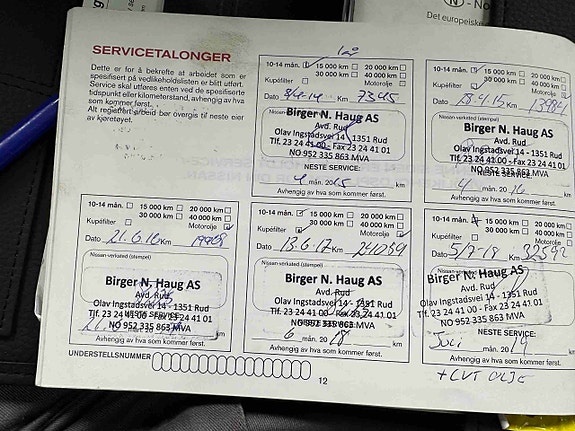 N - No
Det europeiske
SERVICETALONGER
Dette er for å bekrefte at arbeidet som er
spesifisert på vedlikeholdslisten er blitt utført.
Service skal utføres enten ved de spesifiserte
tidspunkt eller kilometerstand, avhengig av hva
som kommer først.
Alt registrert arbeid bør overgis til neste eier
av kjøretøyet.
1 år
10-14 mån. 15 000 km 20 000 km
30 000 km 40 000 km
Kupéfilter Motorolje
Dato 8/4-14 Km 7345
Nissan-verksted (stempel)
Birger N. Haug AS
Avd. Rud
Olav Ingstadsvei 14 - 1351 Rud
Tlf. 23 24 41 00 - Fax 23 24 41 01
NO 952 335 863 MVA
NESTE SERVICE:
4 mån. 2015 km
Avhengig av hva som kommer først.
10-14 mån. 15 000 km 20 000 km
30 000 km 40 000 km
Kupéfilter Motorolje
Dato 28.4.15 Km 13984
Nissan-verksted (stempel)
Birger N. Haug AS
Avd. Rud
Olav Ingstadsvei 14 - 1351 Rud
Tlf. 23 24 41 00 - Fax 23 24 41 01
NO 952 335 863 MVA
NESTE SERVICE:
4 mån. 2016 km
Avhengig av hva som kommer først.
10-14 mån. 15 000 km 20 000 km
30 000 km 40 000 km
Kupéfilter Motorolje
Dato 21.6.16 Km
Nissan-verksted (stempel)
Birger N. Haug AS
Avd. Rud
Olav Ingstadsvei 14 - 1351 Rud
Tlf. 23 24 41 00 - Fax 23 24 41 01
NESTE SERVICE:
NO 952 335 863 MVA
mån. 20 km
Avhengig av hva som kommer først.
10-14 mån. 15 000 km 20 000 km
30 000 km 40 000 km
Kupéfilter Motorolje
Dato 13.6.17 Km 241059
Nissan-verksted (stempel)
Birger N. Haug AS
Avd. Rud
Olav Ingstadsvei 14 - 1351 Rud
Tlf. 23 24 41 00 - Fax 23 24 41 01
NO 952 335 863 MVA
6 mån. 2018 km
Avhengig av hva som kommer først.
10-14 mån. 15 000 km 20 000 km
30 000 km 40 000 km
Kupéfilter Motorolje
Dato 5/7-18 Km 32592
Nissan-verksted (stempel)
Birger N. Haug AS
Avd. Rud
Olav Ingstadsvei 14 - 1351 Rud
Tlf. 23 24 41 00 - Fax 23 24 41 01
NO 952 335 863 MVA
NESTE SERVICE:
Juli mån. 2019 km
Avhengig av hva som kommer først.
+ CVT OLJE
UNDERSTELLSNUMMER
12